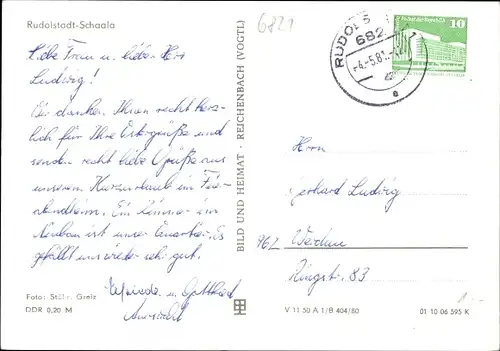 Rudolstadt-Schaala
6821
Liebe Frau u. lieber Herr
Ludwig!
Wir danken Ihnen recht herz-
lich für Ihre Ostergrüße und
senden recht liebe Grüße aus
unserem Kurzurlaub im Fei-
erabendheim. Ein Zimmer im
Neubau ist unser Quartier. Es
gefällt uns wieder sehr gut.
Elfriede u. Gottfried
Foto: Stöhr, Greiz
DDR 0,20 M
BILD UND HEIMAT · REICHENBACH (VOGTL)
RUDOLS
682
-4.-5.81.-
e
10
Herrn
Gerhard Ludwig
962 Werdau
Ringstr. 83
V 11 50 A 1/B 404/80
01 10 06 595 K
1.-